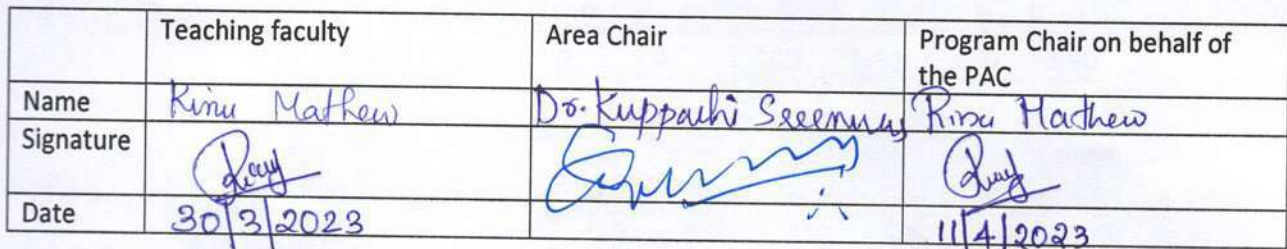 Teaching faculty Area Chair Program Chair on behalf of
the PAC
Name Rinu Mathew Dr. Kuppachi Sreenivas Rinu Mathew
Signature
Date 30/3/2023 11/4/2023